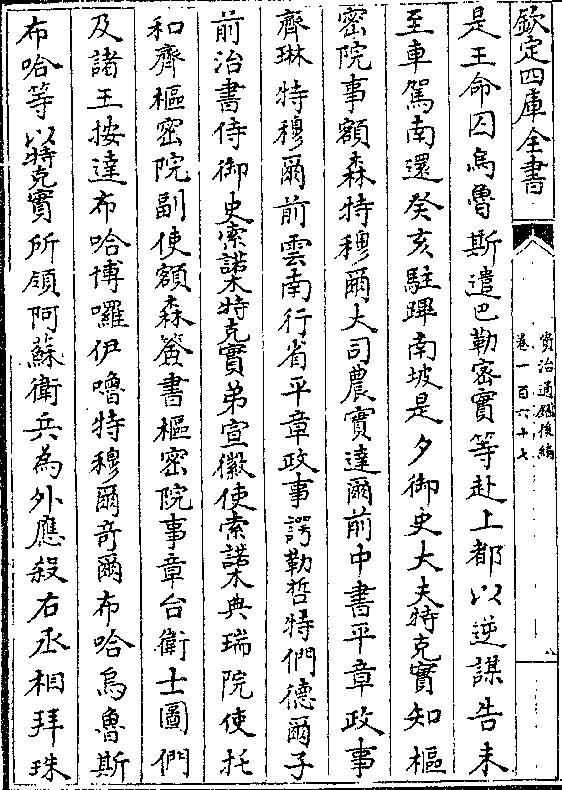 欽定四庫全書
資治通鑑後編
卷一百六十七
八
是王命囚烏魯斯遣巴勒密實等赴上都以逆謀告未
至車駕南還癸亥駐蹕南坡是夕御史大夫特克實知樞
密院事額森特穆爾大司農實達爾前中書平章政事
齊琳特穆爾前雲南行省平章政事諤勒哲特們德爾子
前治書侍御史索諾木特克實弟宣徽使索諾木典瑞院使托
和齊樞密院副使額森簽書樞密院事章台衛士圖們
及諸王按達布哈博囉伊嚕特穆爾奇爾布哈烏魯斯
布哈等以特克實所領阿蘇衛兵為外應殺右丞相拜珠